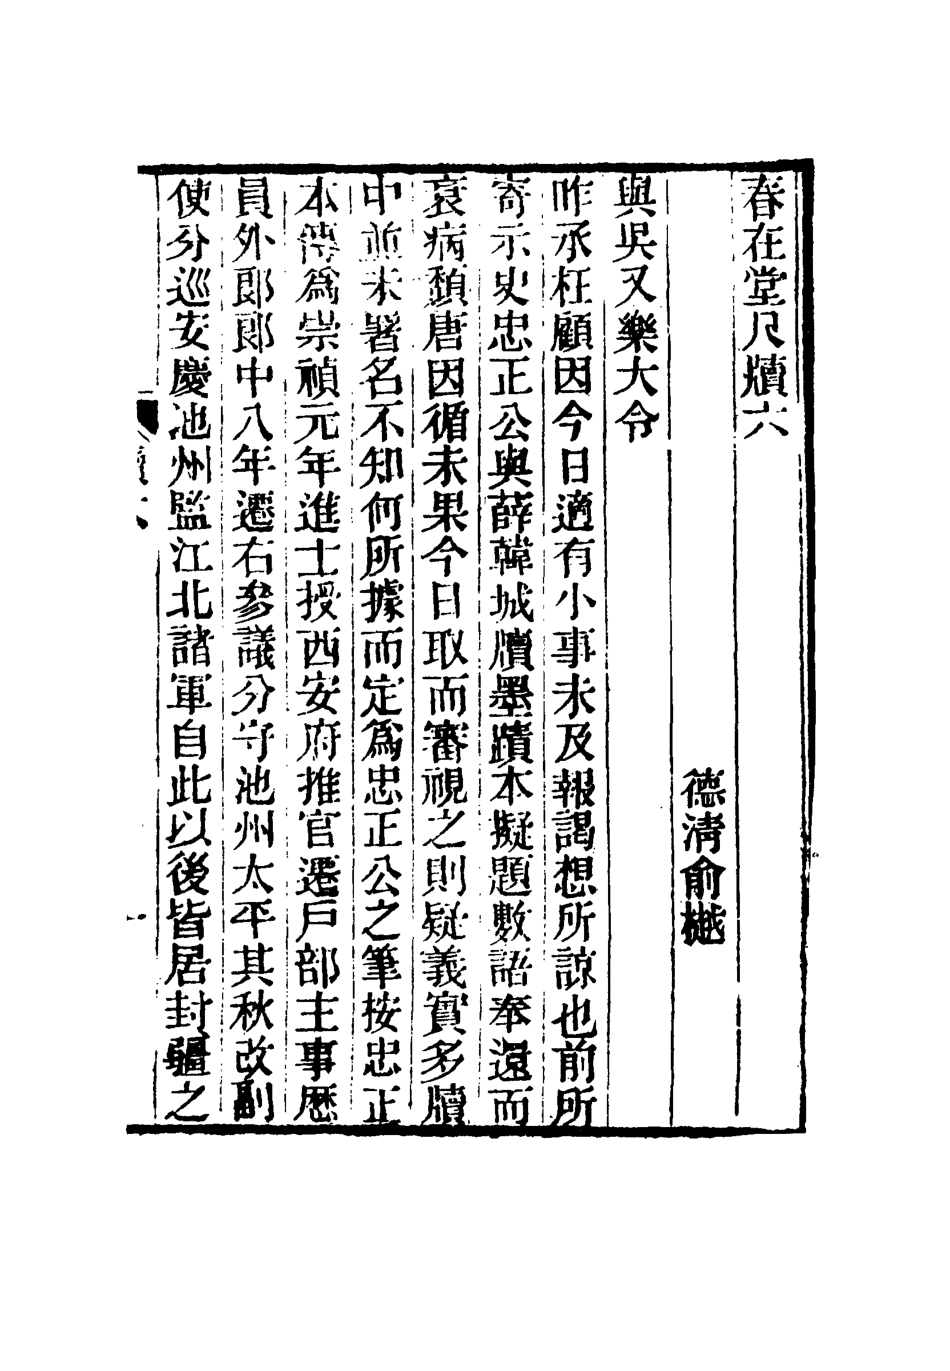 春在堂尺牘六
德清俞樾
與吳又樂大令
昨承枉顧因今日適有小事未及報謁想所諒也前所
寄示史忠正公與薛韓城牘墨蹟本擬題數語奉還而
衰病頹唐因循未果今日取而審視之則疑義實多牘
中並未署名不知何所據而定為忠正公之筆按忠正
本傳為崇禎元年進士授西安府推官遷戶部主事歷
員外郎郎中八年遷右參議分守池州太平其秋改副
使分巡安慶池州監江北諸軍自此以後皆居封疆之